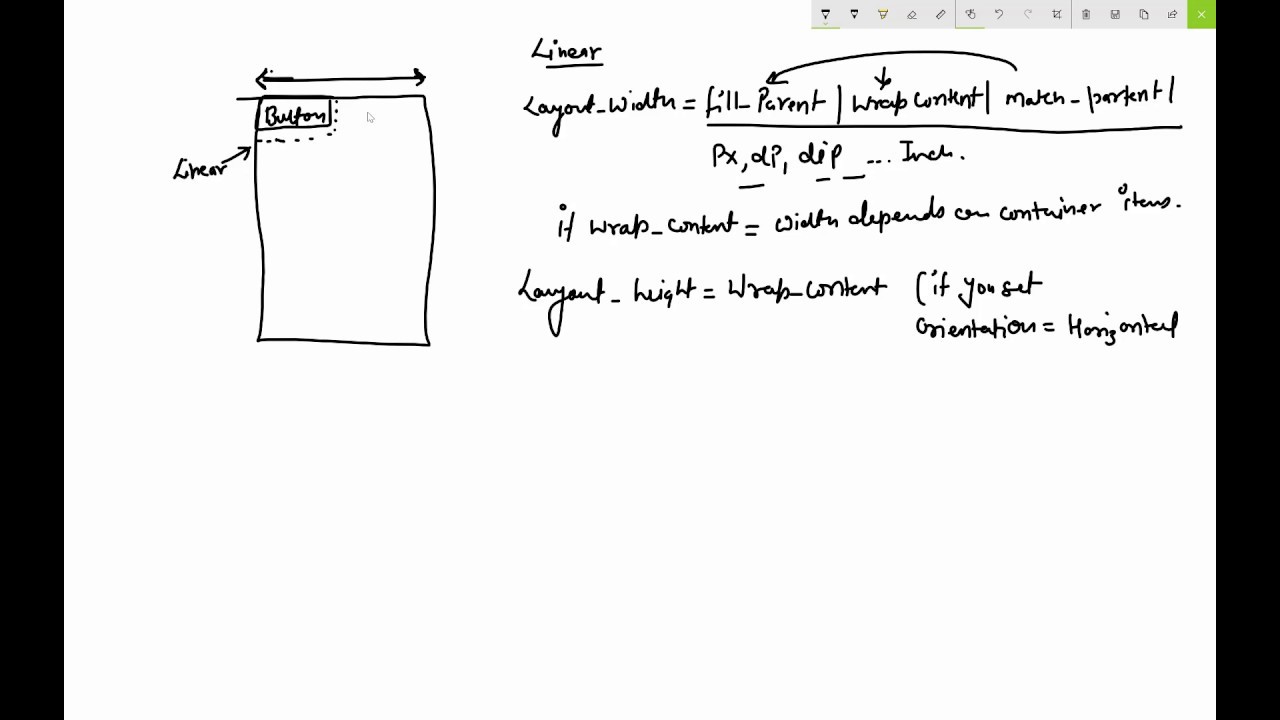 Linear
Layout_Width = fill_Parent | Wrap Content | match_partent |
Px, dp, dip ... Inch.
if wrap_content = width depends on container items.
Layout_height = Wrap_content (if you set
Orientation = Horizontal
Button
Linear